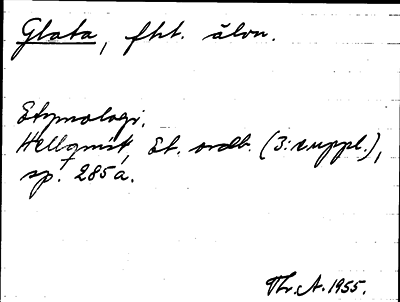 Glata, fht. älvn.
Etymologi.
Hellqvist, Et. ordb. (3: suppl.),
sp. 285 a.
Th. A. 1955.